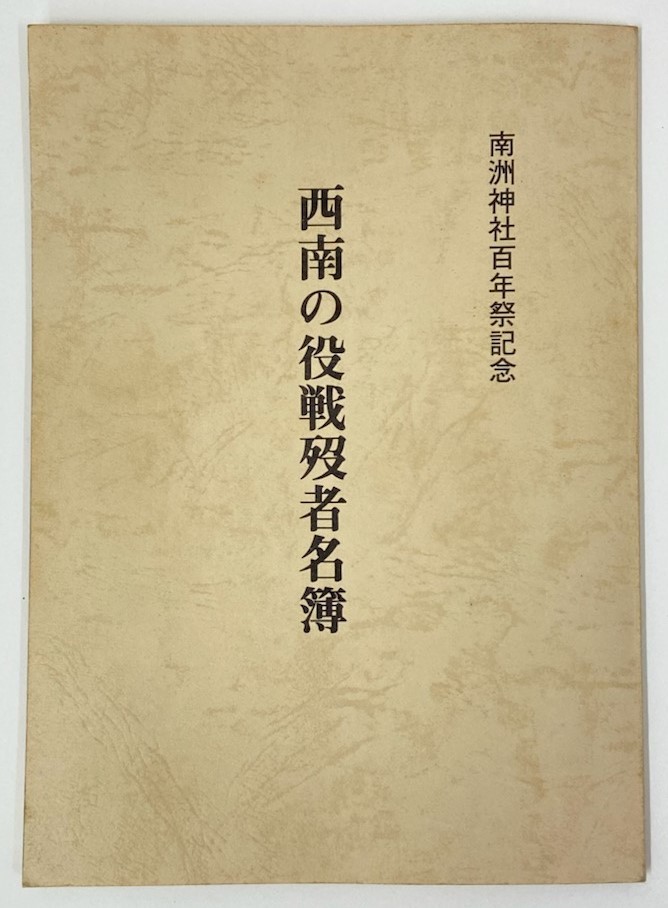 南洲神社百年祭記念
西南の役戦歿者名簿